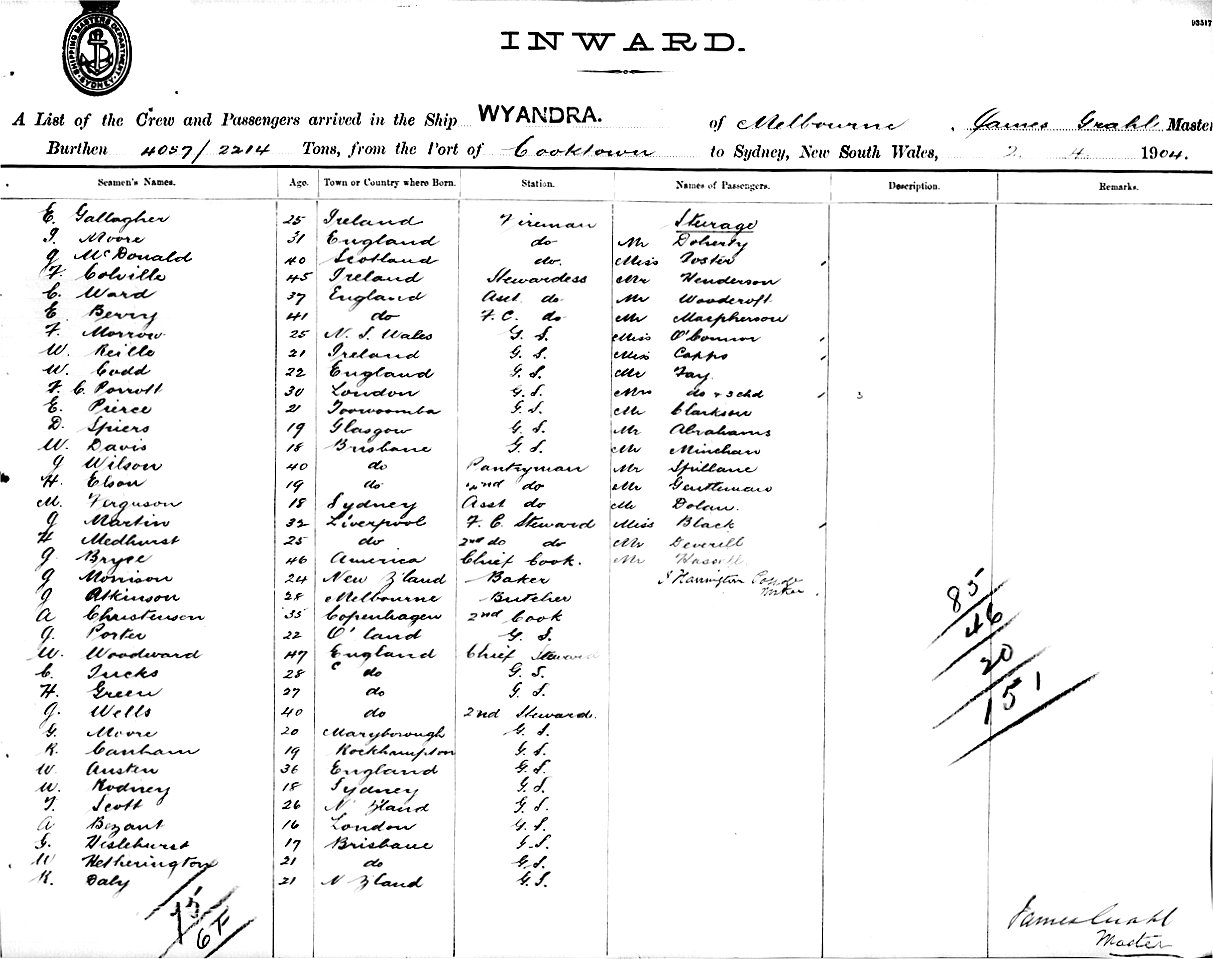 93517
SHIPPING MASTERS DEPARTMENT SYDNEY
INWARD.
A List of the Crew and Passengers arrived in the Ship WYANDRA. of Melbourne, James Grahl Master
Burthen 4057/2214 Tons, from the Port of Cooktown to Sydney, New South Wales, 2 4 1904.
Seamen's Names. Age. Town or Country where Born. Station. Names of Passengers. Description. Remarks.
E. Gallagher 25 Ireland Fireman Sturage
T. Moore 31 England do Mr Doherty
J McDonald 40 Scotland do. Miss Foster
F. Colville 45 Ireland Stewardess Mr Henderson
C. Ward 37 England Asst do Mr Woodcroft
E. Berry 41 do F.C. do Mr Macpherson
F. Morrow 25 N.S. Wales G.S. Miss O'Connor
W. Reille 21 Ireland G.S. Miss Capps
W. Codd 22 England G.S. Mr Fay
F. C. Parrott 30 London G.S. Mrs do + 3 chd 3
E. Pierce 21 Toowoomba G.S. Mr Clarkson
D. Spiers 19 Glasgow G.S. Mr Abrahams
W. Davis 18 Brisbane G.S. Mr Minchan
J Wilson 40 do Pantryman Mr Spillane
H. Elson 19 do 2nd do Mr Gentleman
M. Ferguson 18 Sydney Asst do Mr Dolan.
J Martin 32 Liverpool F.C. Steward Miss Black
H Medhurst 25 do 2nd do do Mr Deverell
J. Bryce 46 America Chief Cook. Mr Hassell
J Morrison 24 New Z'land Baker J Harrington
J Atkinson 28 Melbourne Butcher
A Christenson 35 Copenhagen 2nd Cook
J. Porter 22 Q'land G.S.
W. Woodward 47 England Chief Steward
C. Tucks 28 do G.S.
H. Green 27 do G.S.
J. Wells 40 do 2nd Steward.
G. Moore 20 Maryborough G.S.
R. Canham 19 Rockhampton G.S.
W. Austen 36 England G.S.
W. Rodney 18 Sydney G.S.
T. Scott 26 N Zland G.S.
A Bezant 16 London G.S.
G. Hislehurst 17 Brisbane G.S.
W Hetherington 21 do G.S.
R. Daly 21 N Zland G.S.
85
46
20
151
75
6F
James Grahl
Master